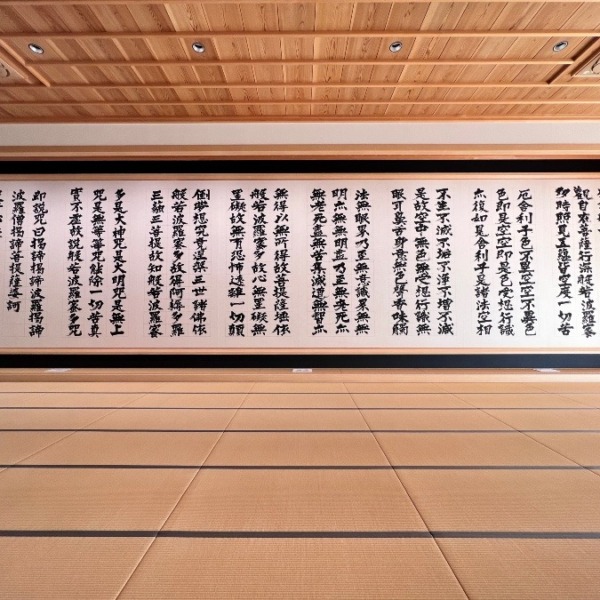 観自在菩薩行深般若波羅蜜
多時照見五蘊皆空度一切苦
厄舎利子色不異空空不異色
色即是空空即是色受想行識
亦復如是舎利子是諸法空相
不生不滅不垢不浄不増不減
是故空中無色無受想行識無
眼耳鼻舌身意無色聲香味觸
法無眼界乃至無意識界無無
明亦無無明盡乃至無老死亦
無老死盡無苦集滅道無智亦
無得以無所得故菩提薩埵依
般若波羅蜜多故心無罣礙無
罣礙故無有恐怖遠離一切顛
倒夢想究竟涅槃三世諸佛依
般若波羅蜜多故得阿耨多羅
三藐三菩提故知般若波羅蜜
多是大神咒是大明咒是無上
咒是無等等咒能除一切苦真
實不虚故説般若波羅蜜多咒
即説咒曰掲諦掲諦波羅掲諦
波羅僧掲諦菩提薩婆訶